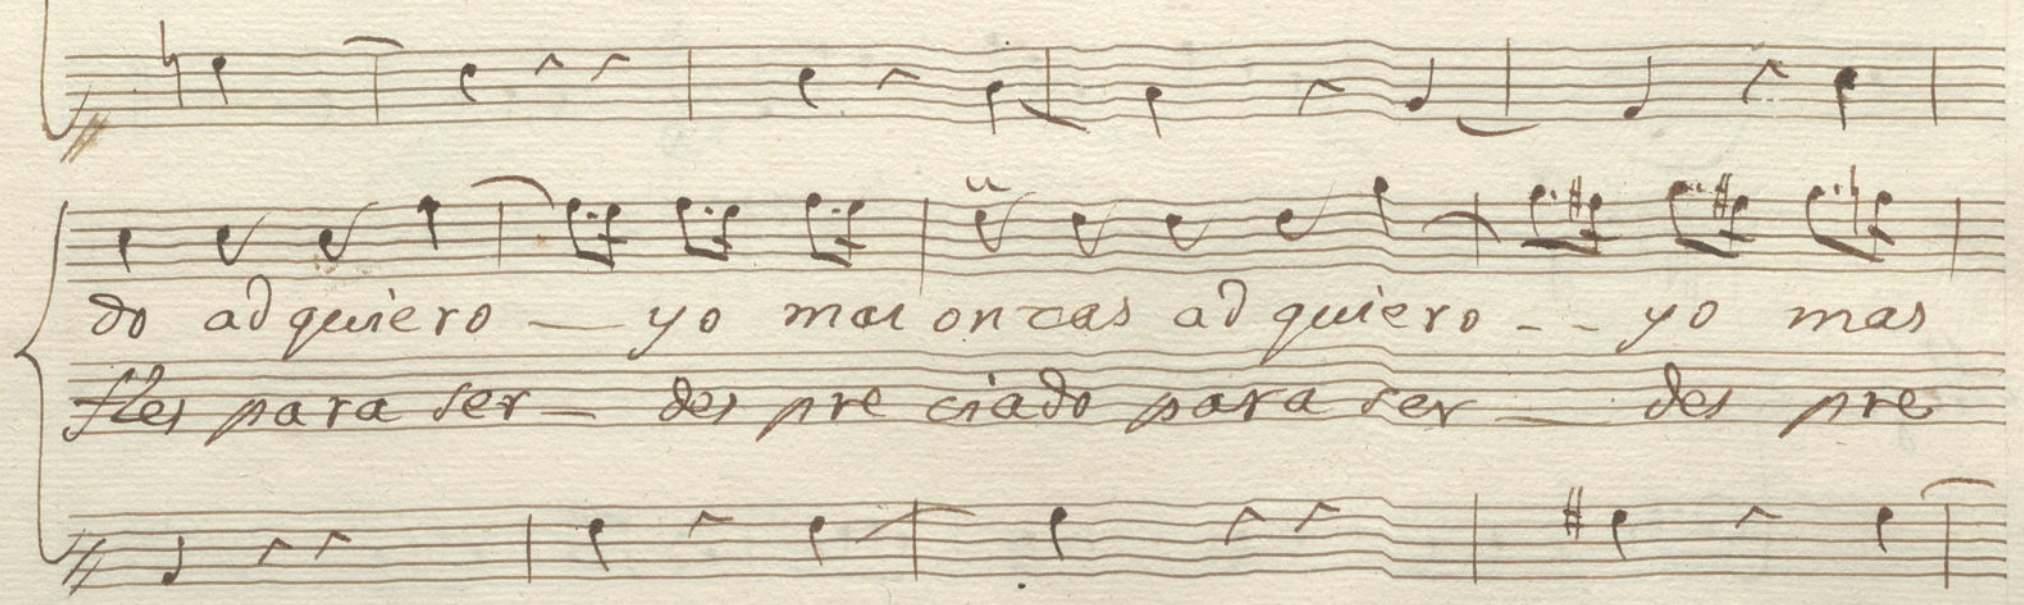 do ad quiero — yo mas onzas ad quiero - - yo mas
fles para ser — des pre ciado para ser — des pre